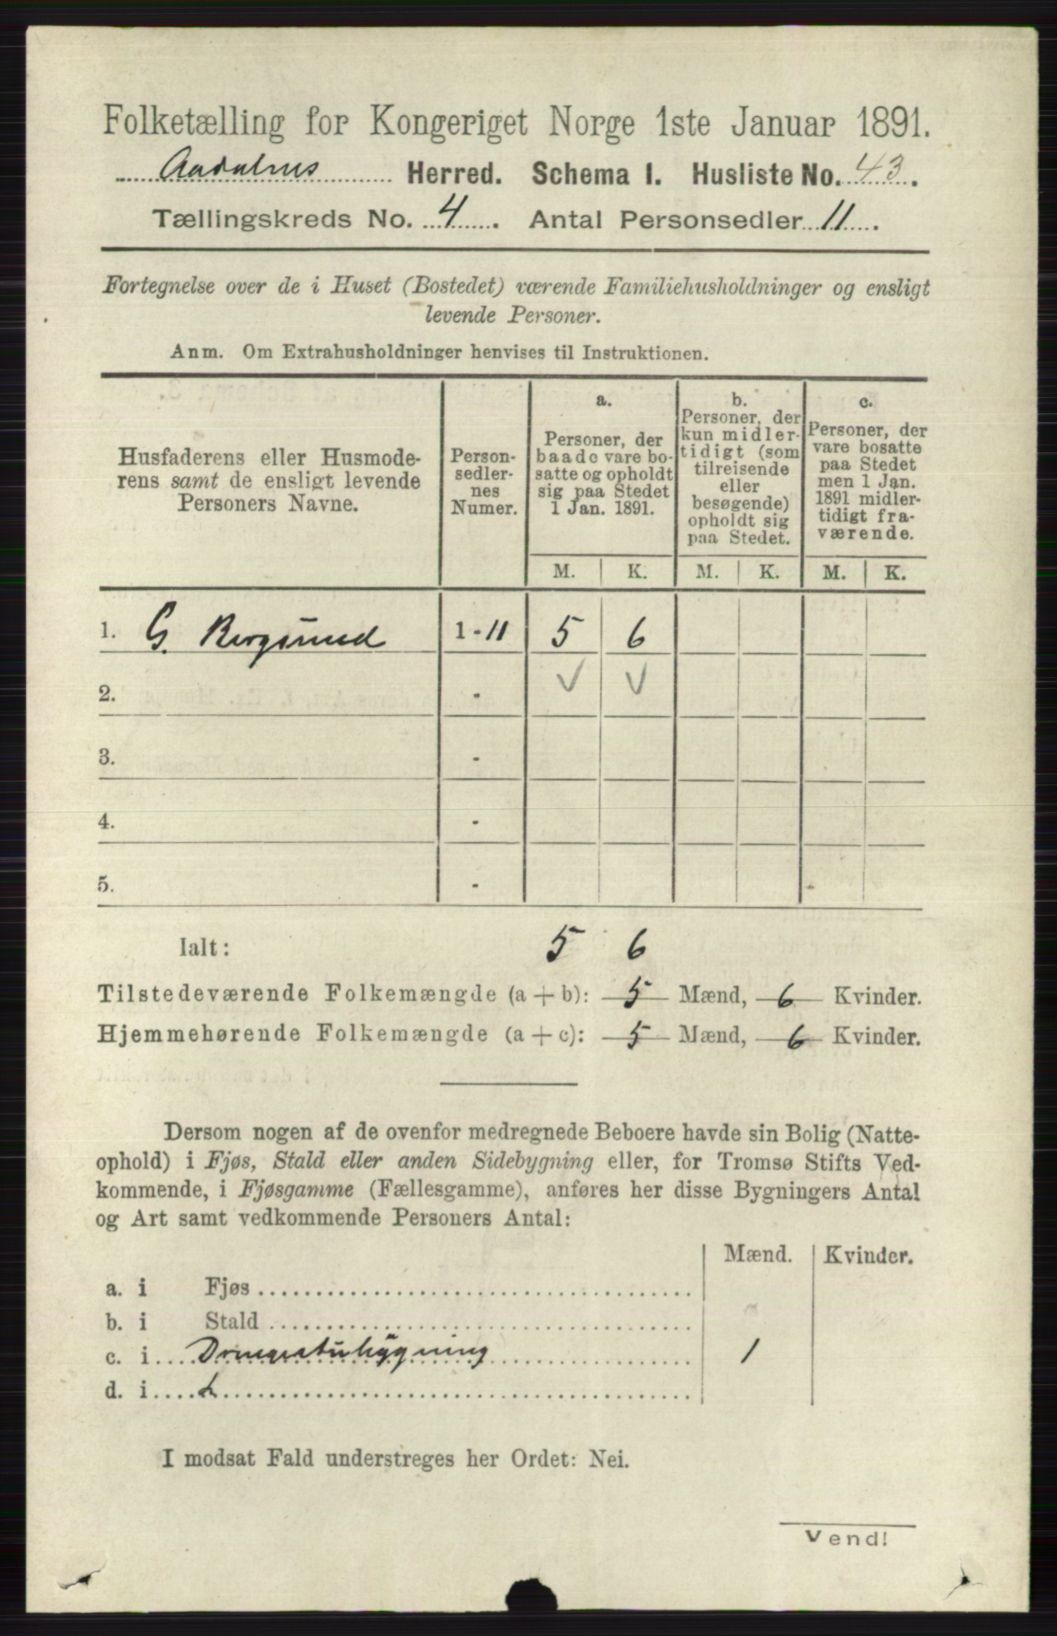 Folketælling for Kongeriget Norge 1ste Januar 1891.
Aadalens Herred. Schema I. Husliste No. 43.
Tællingskreds No. 4. Antal Personsedler 11.
Fortegnelse over de i Huset (Bostedet) værende Familiehusholdninger og ensligt
levende Personer.
Anm. Om Extrahusholdninger henvises til Instruktionen.
Husfaderens eller Husmode-
rens samt de ensligt levende
Personers Navne.
Person-
sedler-
nes
Numer.
a.
Personer, der
baade vare bo-
satte og opholdt
sig paa Stedet
1 Jan. 1891.
b.
Personer, der
kun midler-
tidigt (som
tilreisende
eller
besøgende)
opholdt sig
paa Stedet.
c.
Personer, der
vare bosatte
paa Stedet
men 1 Jan.
1891 midler-
tidigt fra-
værende.
M. K. M. K. M. K.
1. G. Bergsund 1-11 5 6
2. -
3. -
4. -
5. -
Ialt: 5 6
Tilstedeværende Folkemængde (a + b): 5 Mænd, 6 Kvinder.
Hjemmehørende Folkemængde (a + c): 5 Mænd, 6 Kvinder.
Dersom nogen af de ovenfor medregnede Beboere havde sin Bolig (Natte-
ophold) i Fjøs, Stald eller anden Sidebygning eller, for Tromsø Stifts Ved-
kommende, i Fjøsgamme (Fællesgamme), anføres her disse Bygningers Antal
og Art samt vedkommende Personers Antal:
Mænd. Kvinder.
a. i Fjøs
b. i Stald
c. i Drengestubygning 1
d. i
I modsat Fald understreges her Ordet: Nei.
Vend!